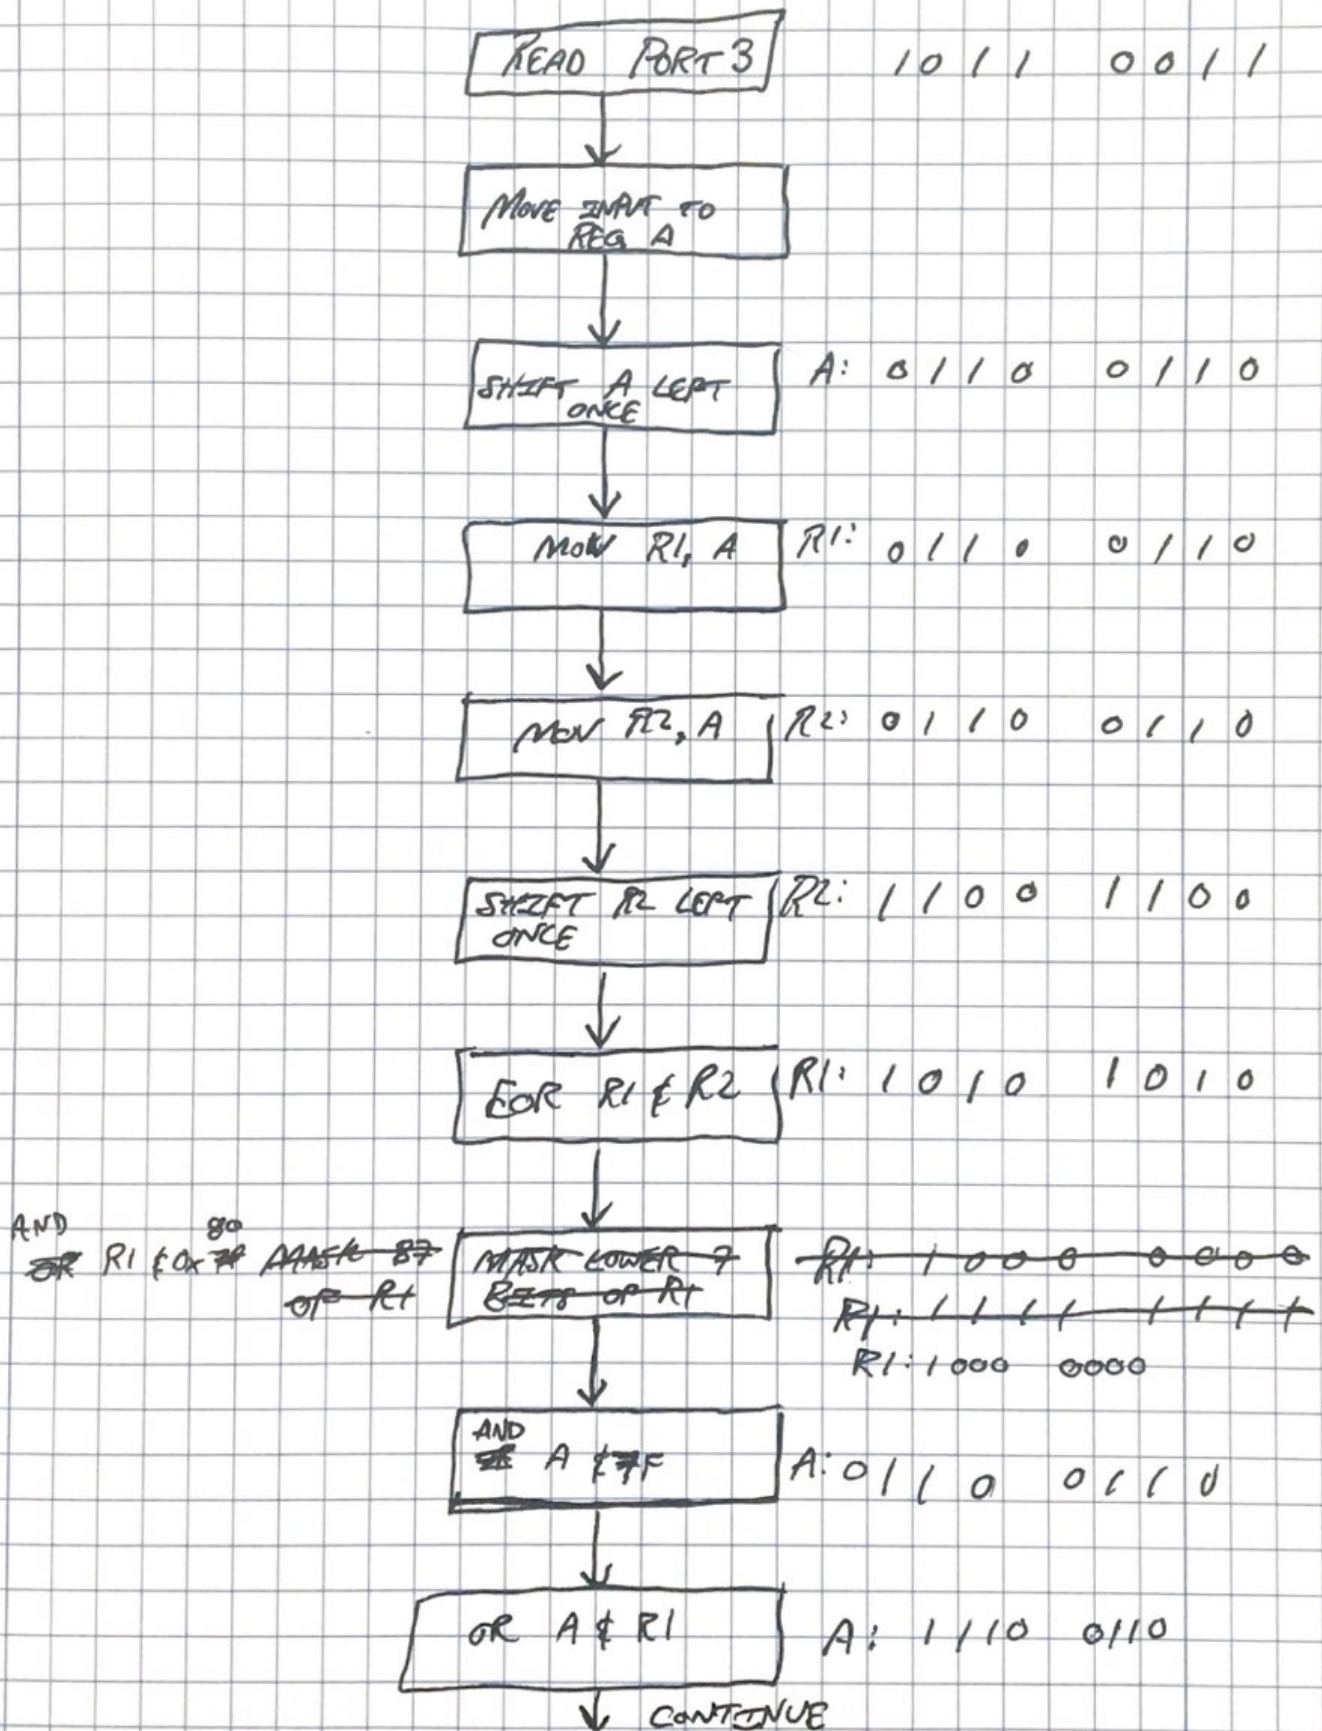 READ PORT 3 1011 0011
MOVE INPUT TO
REG A
SHIFT A LEFT A: 0110 0110
ONCE
MOV R1, A R1: 0110 0110
MOV R2, A R2: 0110 0110
SHIFT R2 LEFT R2: 1100 1100
ONCE
EOR R1 & R2 R1: 1010 1010
AND 80
OR R1 & 0x7F MASK B7 MASK LOWER 7 R1: 1000 0000
OF R1 BITS OF R1 R1: 1111 1111
R1: 1000 0000
AND
A & 7F A: 0110 0110
OR A & R1 A: 1110 0110
CONTINUE